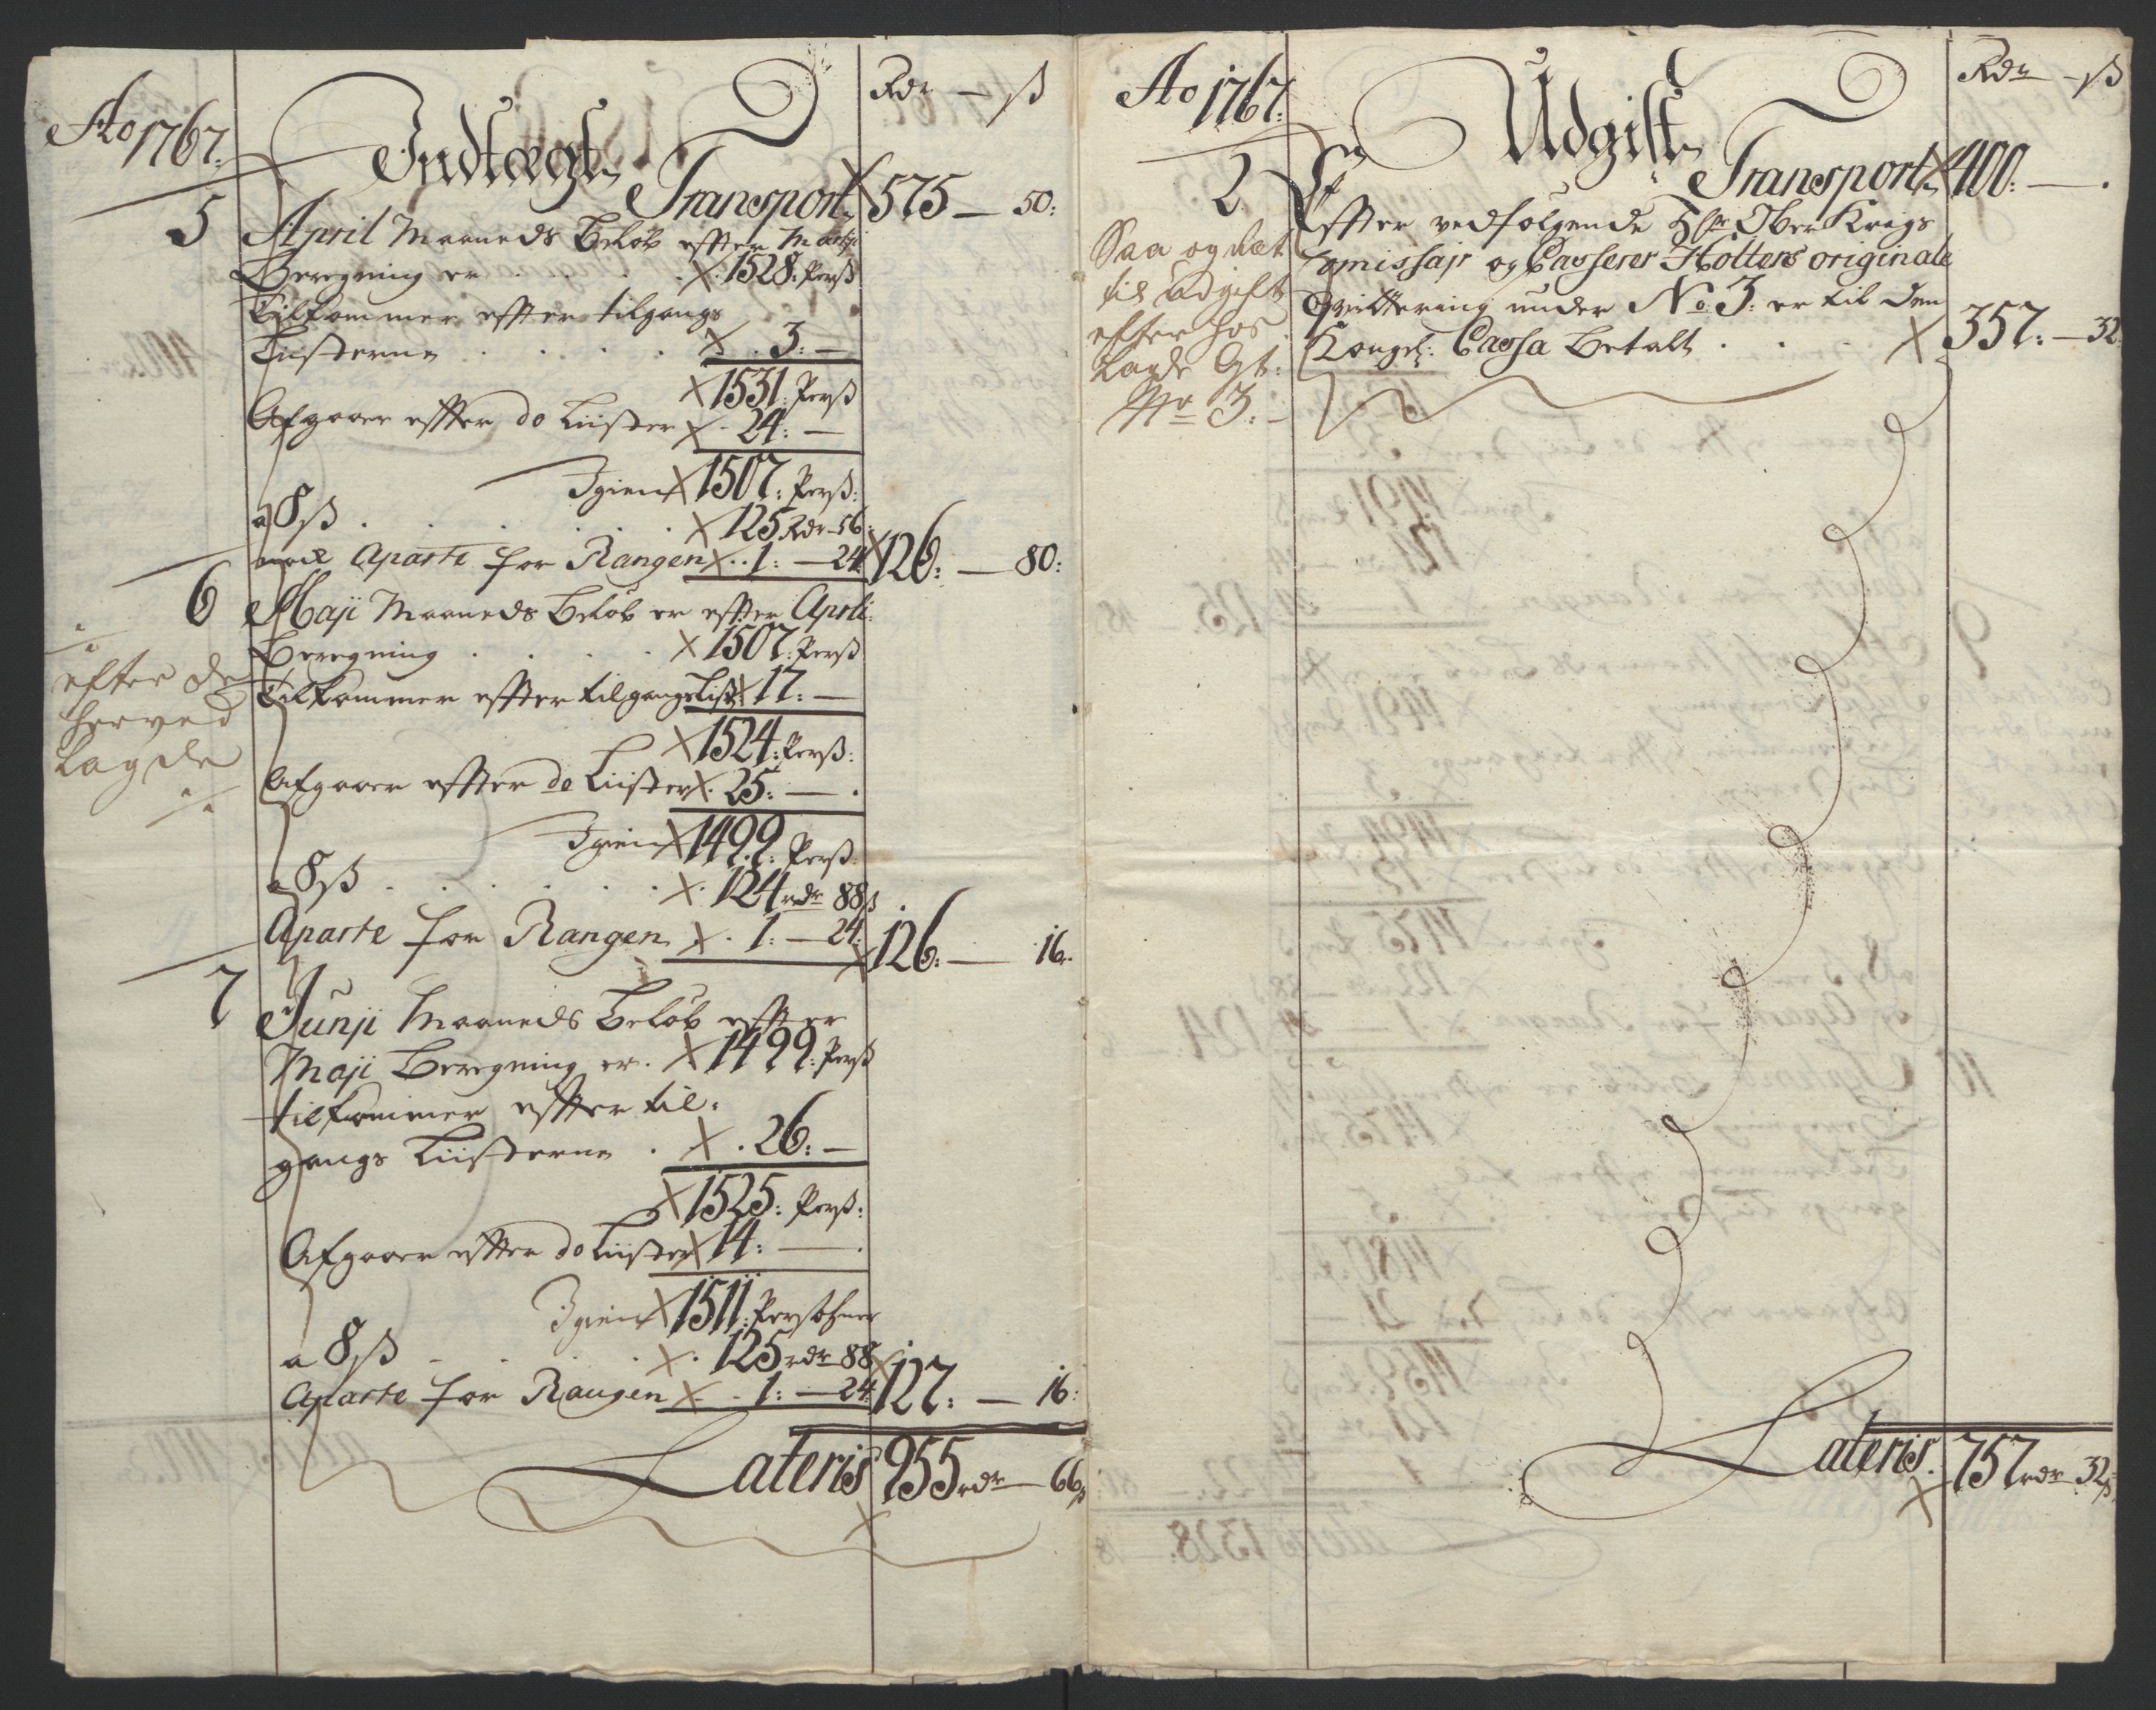 Ao 1767.
Indtægt
Rdr — ß
Transport 575 — 50:
5 April Maaneds Beløb effter Martii
Beregning er . . . . 1528: Perß
Tilkommer effter tilgangs
Listerne . . . . 3: —
1531: Perß
Afgaaer effter do Liister 24: —
Igien 1507: Perß:
a 8 ß . . . . . . 125 Rdr 56:
med Aparte for Rangen 1: — 24 126: — 80:
6 Maji Maaneds Beløb er effter Aprili:
Beregning . . . . 1507: Perß
Tilkommer effter tilgangs List 17: —
1524: Perß:
Afgaaer effter do Liister 25: — .
Igien 1499: Perß:
a 8 ß . . . . . . 124 rdr 88 ß .
Aparte for Rangen . 1: — 24. 126: — 16.
./. efter de
herved
Lagde
./.
7 Junji Maaneds Beløb effter
Maji Beregning er . 1499: Perß
tilkommer effter til:
gangs Liisterne . . 26: —
1525: Perß:
Afgaaer effter do Liister 14: — .
Igien 1511: Persohner
a 8 ß . . . 125 rdr 88
Aparte for Rangen . 1: — 24: 127: — 16:
Lateris 955 rdr — 66 ß
Ao 1767.
Udgift
Rdr — ß
Transport 400: — .
2. Effter vedfølgende Hr Ober Krigs
Comissair og Casserer Holters originale
Qvittering under No 3: er til den
Kongel: Cassa Betalt . . . 357: — 32.
Saa og Læt
til udgift
efter hos
Lagde Qt:
No 3: —
Lateris. 757 rdr 32 ß